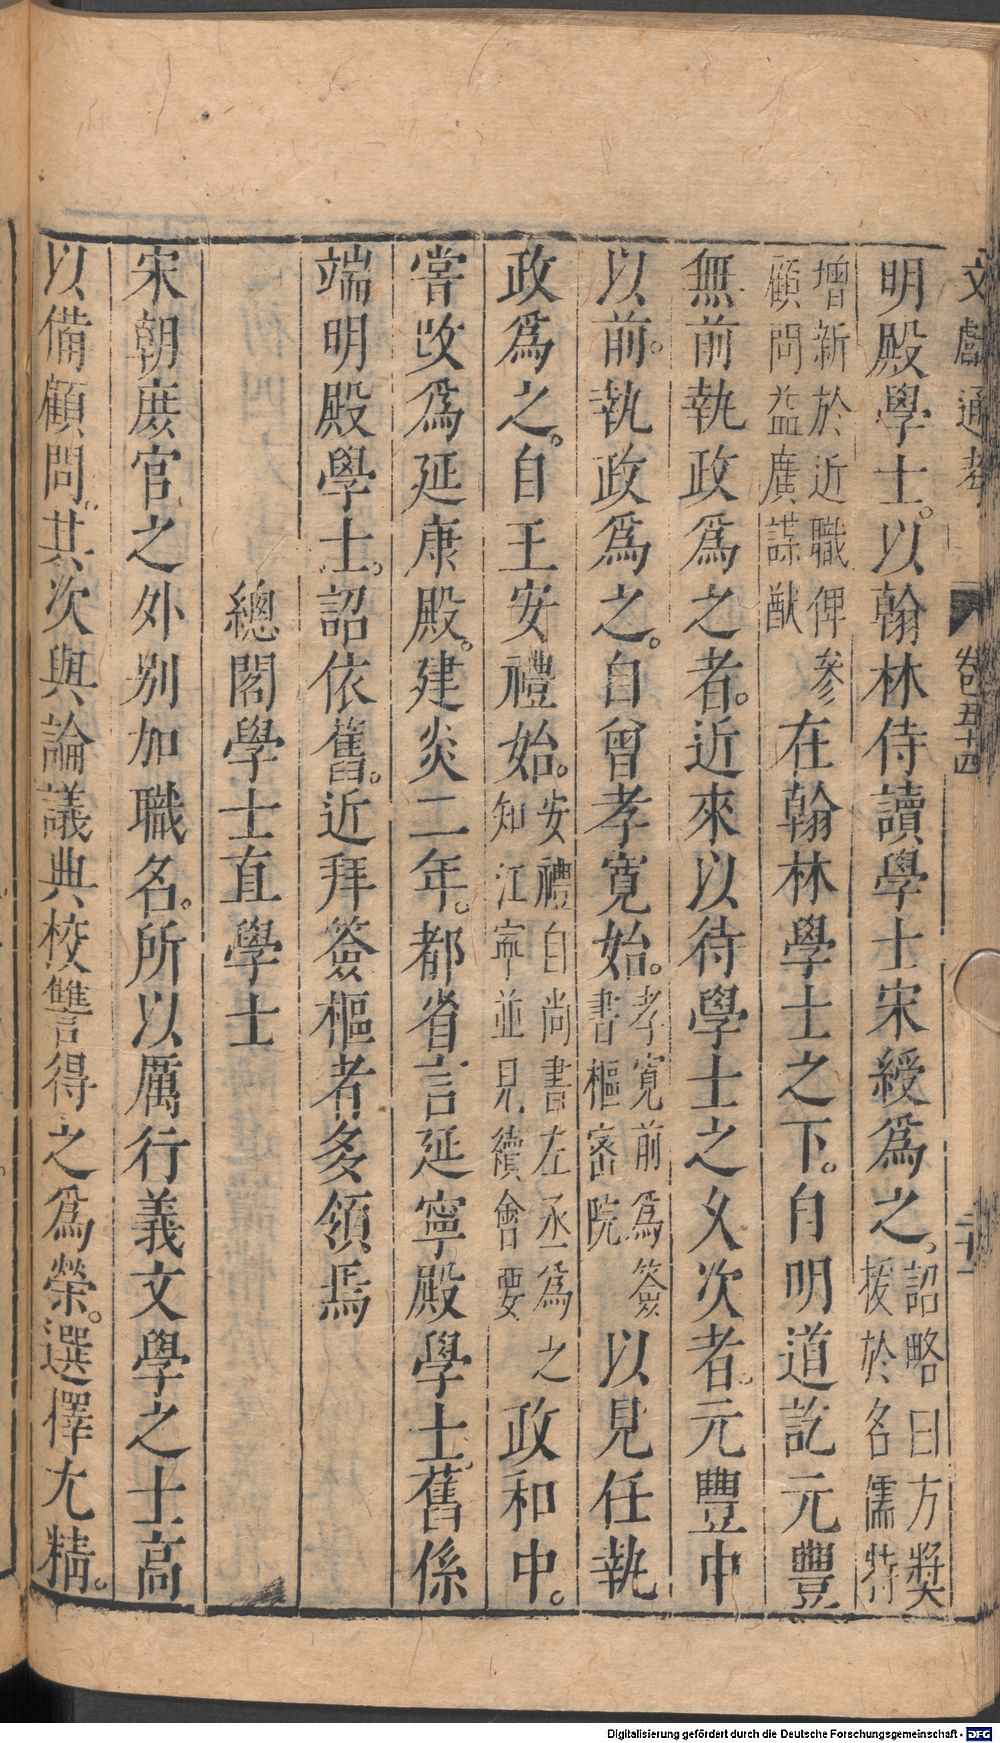 文獻通考 卷五十四 二十一
明殿學士。以翰林侍讀學士宋綬爲之。詔略曰方奬援於名儒特
增新於近職俾參顧問益廣謀猷在翰林學士之下。自明道訖元豐
無前執政爲之者。近來以待學士之久次者。元豐中
以前。執政爲之。自曾孝寛始。孝寛前爲簽書樞密院以見任執
政爲之。自王安禮始。安禮自尚書左丞爲之知江寜並見續會要政和中。
嘗改爲延康殿。建炎二年。都省言延寧殿學士。舊係
端明殿學士。詔依舊。近拜簽樞者多領焉
總閣學士直學士
宋朝庶官之外别加職名。所以厲行義文學之士高
以備顧問。其次與論議典校讐得之爲榮。選擇尤精。
Digitalisierung gefördert durch die Deutsche Forschungsgemeinschaft - DFG